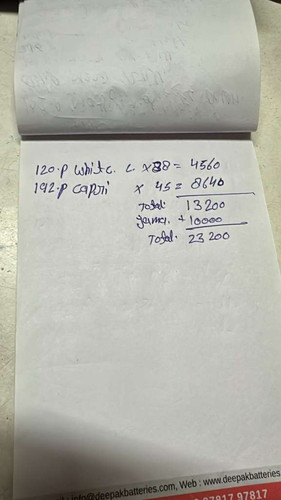 120.P White. L x38 = 4560
192.P Capri x 45 = 8640
Total. 13200
Jama. + 10000
Total. 23200
info@deepakbatteries.com, Web : www.deepakbatteries
97817 97817